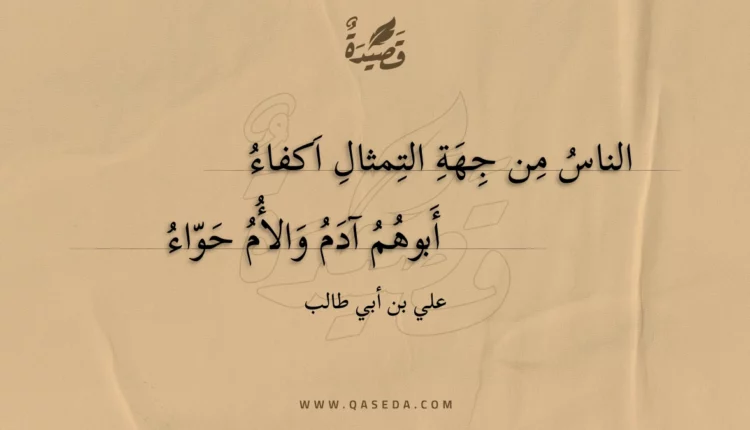 قَصِيدَةٌ
الناسُ مِن جِهَةِ التِمثالِ اَكفاءُ
أَبوهُمُ آدَمُ وَالأُمُ حَوّاءُ
علي بن أبي طالب
WWW.QASEDA.COM